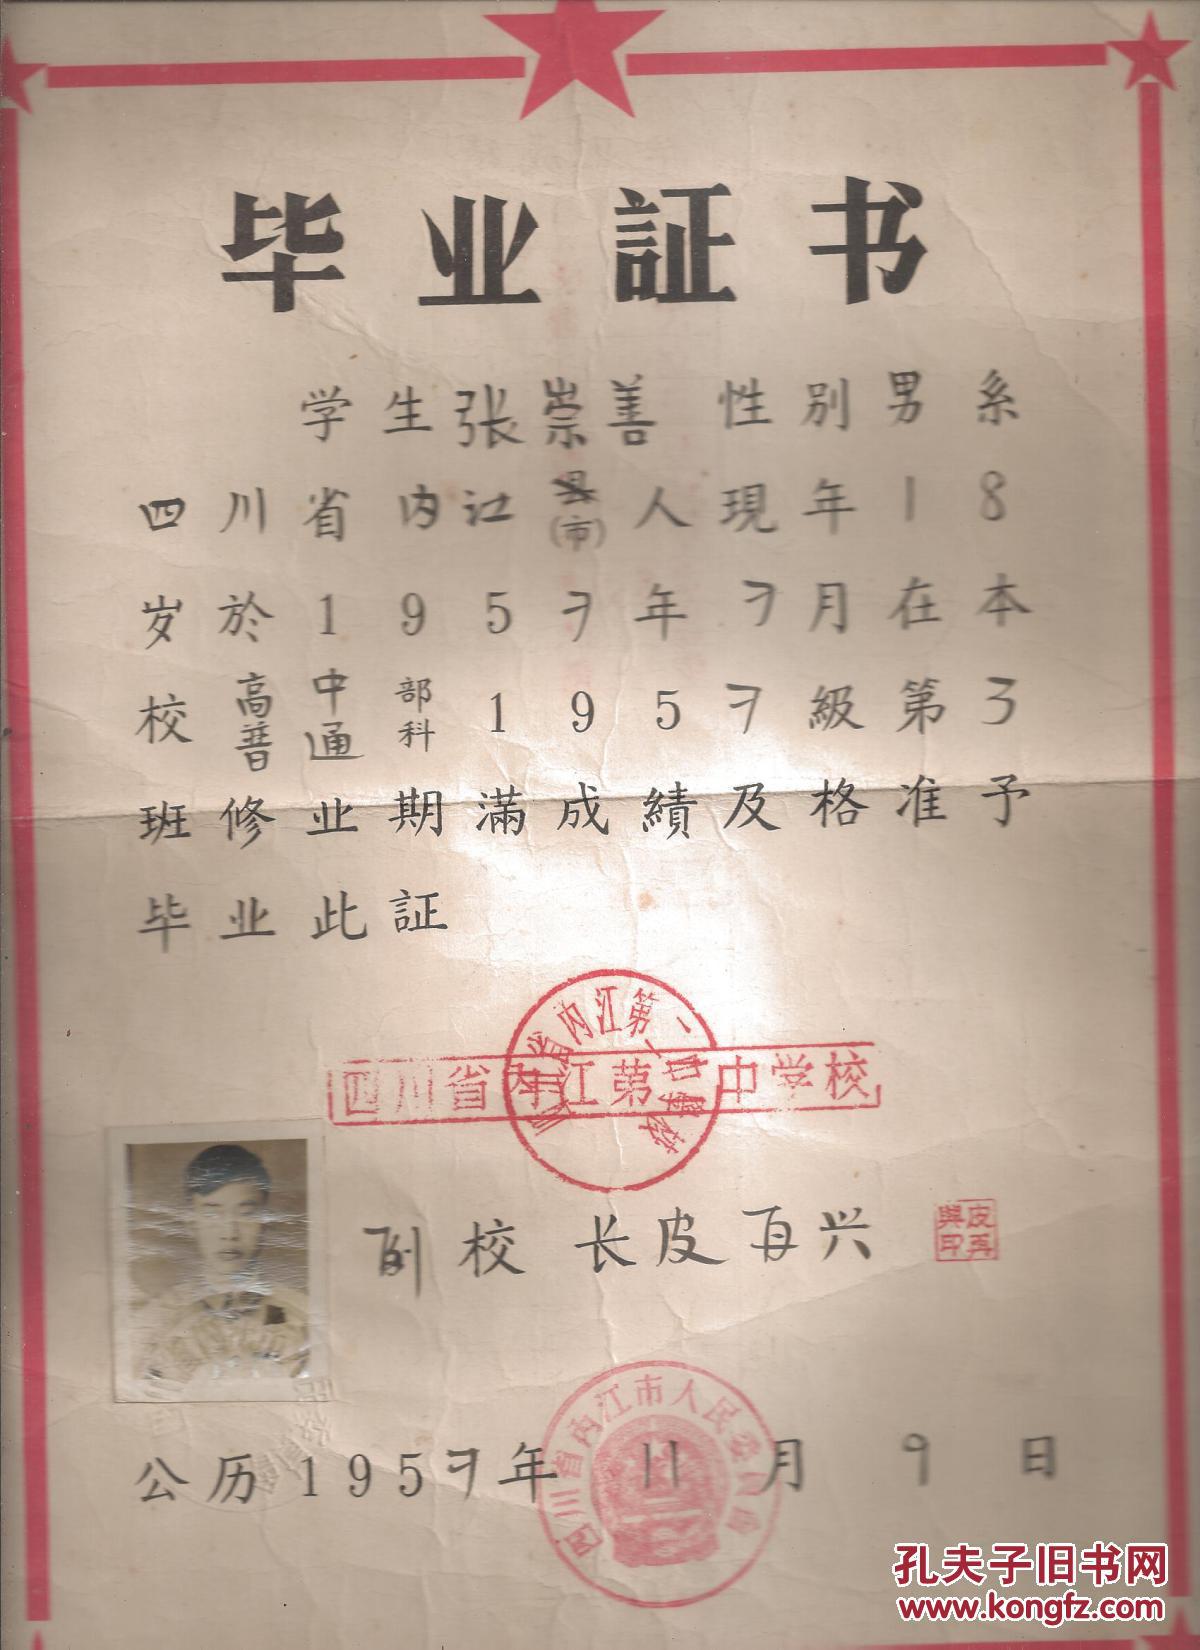 毕业証书
学生张崇善性别男系
四川省内江县(市)人現年18
岁於1957年7月在本
校高中部普通科1957級第3
班修业期滿成績及格准予
毕业此証
四川省内江第二中学校
副校长皮再兴
皮再興印
四川省内江市人民委員会
公历1957年11月9日
孔夫子旧书网
www.kongfz.com